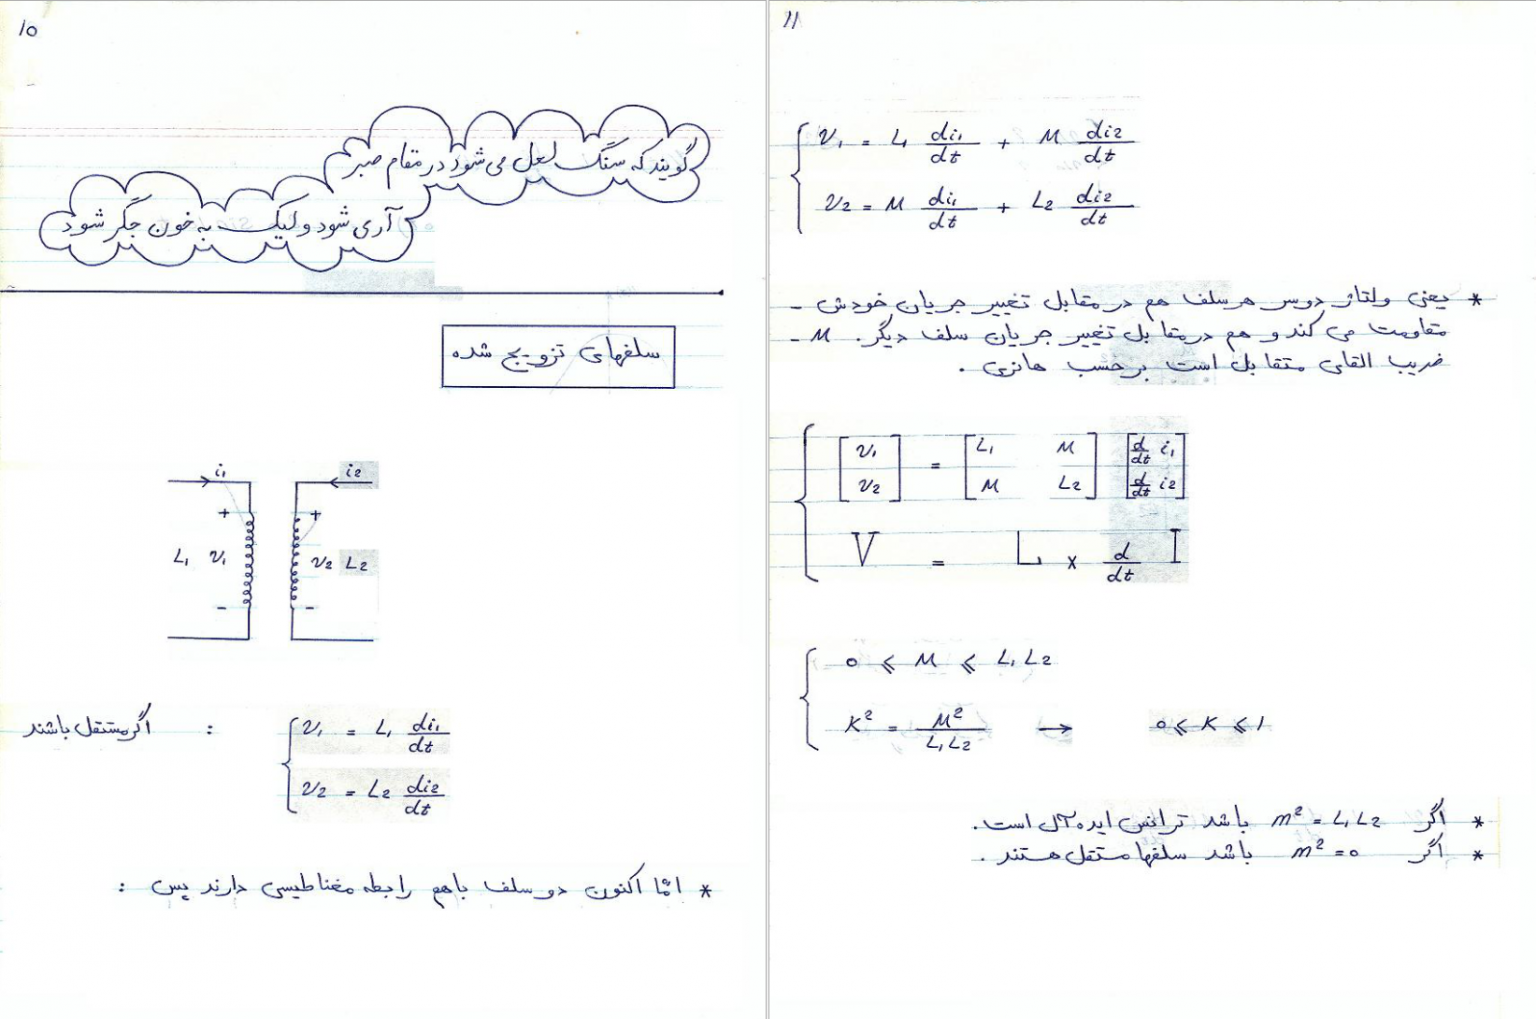 10
گویند که سنگ لعل می‌شود در مقام صبر
آری شود ولیک به خون جگر شود
سلفهای تزویج شده
i1 i2
+ +
L1 v1 v2 L2
- -
اگر مستقل باشند : v1 = L1 di1/dt
v2 = L2 di2/dt
* امّا اکنون دو سلف باهم رابطه مغناطیسی دارند پس :
11
v1 = L1 di1/dt + M di2/dt
v2 = M di1/dt + L2 di2/dt
* یعنی ولتاژ دوسر هر سلف هم در مقابل تغییر جریان خودش -
مقاومت می کند و هم در مقابل تغییر جریان سلف دیگر. M -
ضریب القای متقابل است برحسب هانری .
[v1 v2] = [L1 M M L2] [d/dt i1 d/dt i2]
V = L × d/dt I
0 ⩽ M ⩽ L1 L2
K² = M²/L1L2 → 0 ⩽ K ⩽ 1
* اگر m² = L1L2 باشد ترانس ایده‌آل است.
* اگر m² = 0 باشد سلفها مستقل هستند .